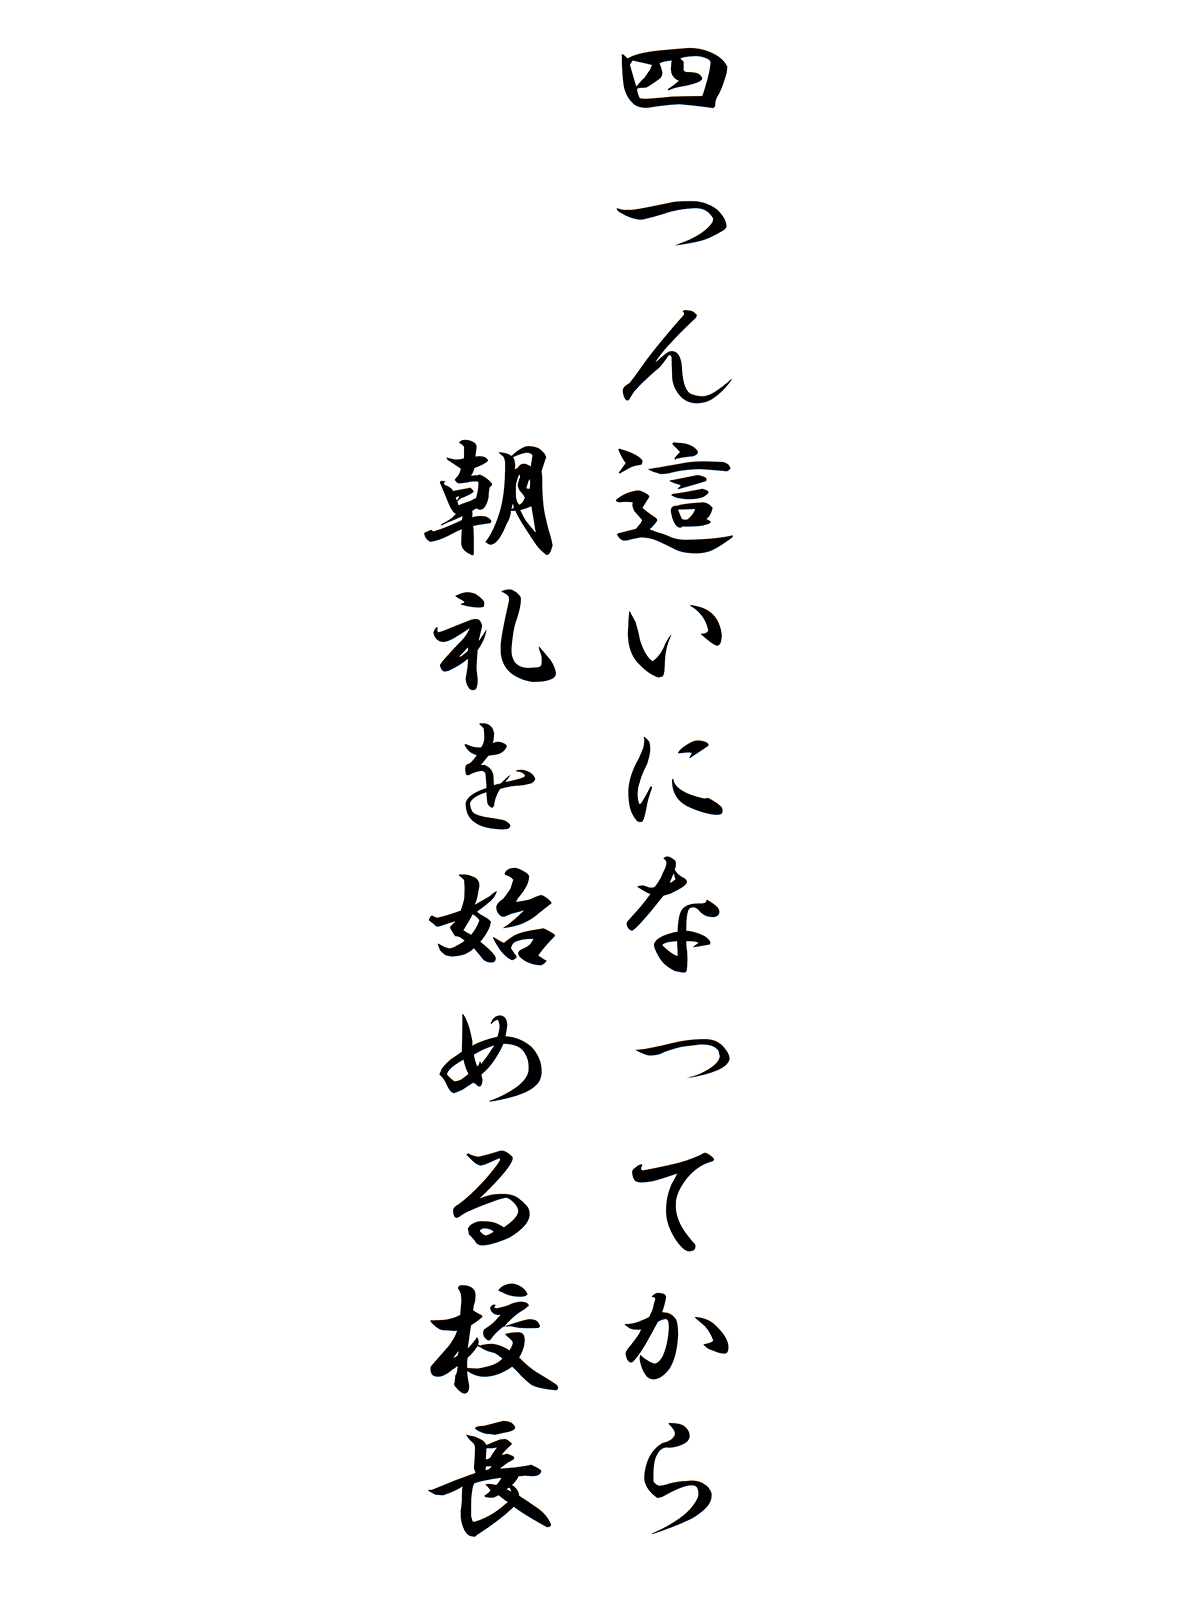 四つん這いになってから
朝礼を始める校長